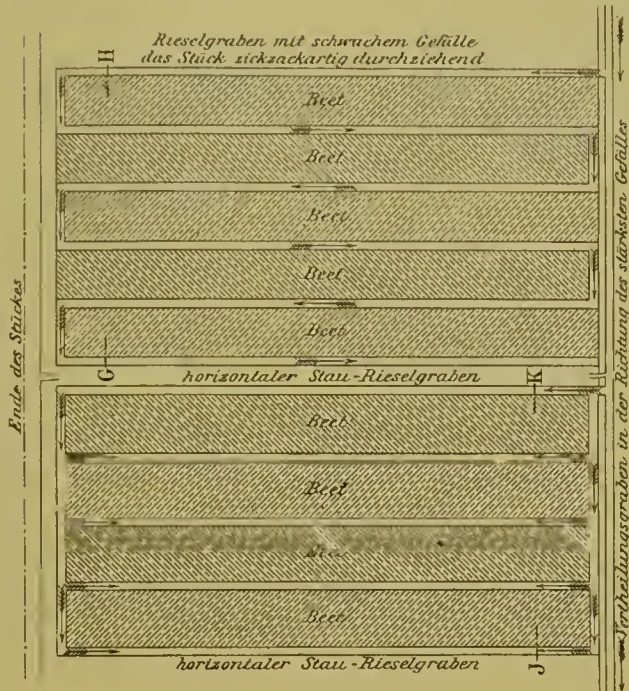 Rieselgraben mit schwachem Gefälle
das Stück zickzackartig durchziehend
H
Beet
Beet
Beet
Beet
Beet
G
horizontaler Stau-Rieselgraben
K
Beet
Beet
Beet
Beet
J
horizontaler Stau-Rieselgraben
Ende des Stückes
Vertheilungsgraben in der Richtung des stärksten Gefälles